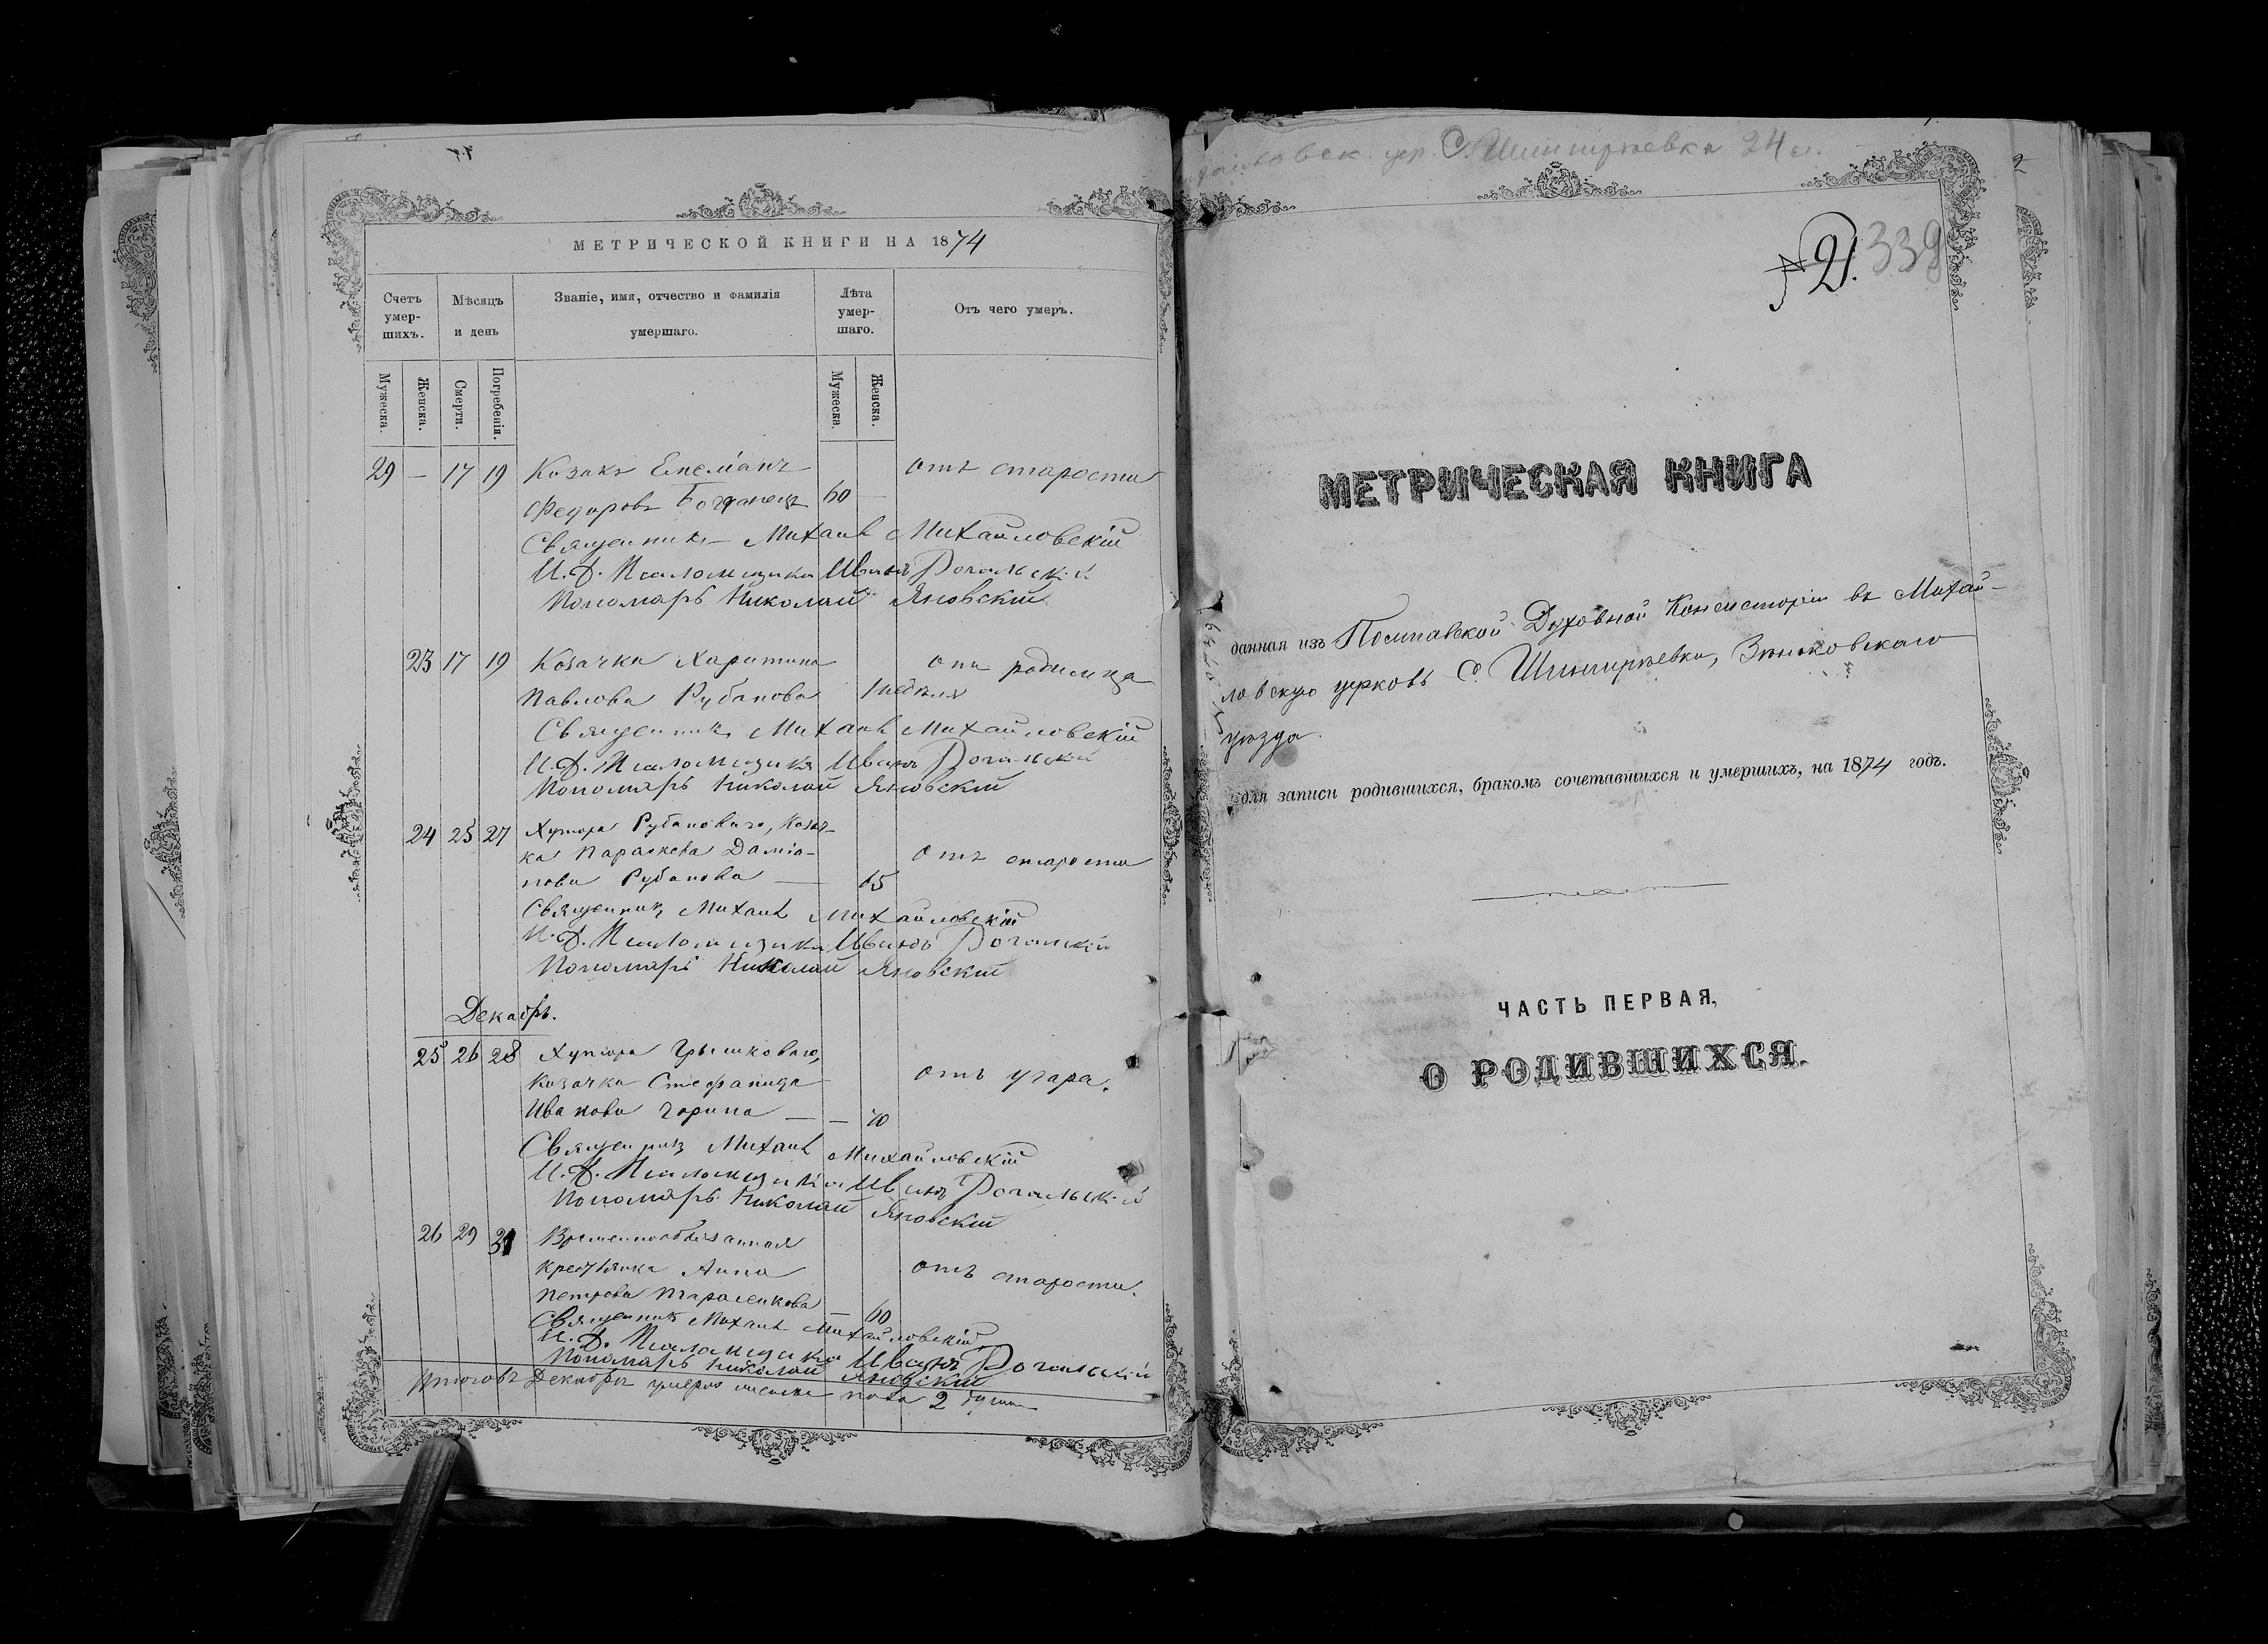 МЕТРИЧЕСКОЙ КНИГИ НА 1874
Счетъ умер-шихъ. Мѣсяцъ и день Званіе, имя, отчество и фамилія умершаго. Лѣта умер-шаго. Отъ чего умеръ.
Мужеска. Женска. Смерти. Погребенія. Мужеска. Женска.
29 — 17 19 Козакъ отъ старости
Федоровъ 60 —
Священникъ Михаилъ Михайловскій
И.д. Псаломщика Иванъ Рогальскій
Пономарь Николай Яновскій
23 17 19 Козачка Харитина отъ родимца
Павлова Рубанова
Священникъ Михаилъ Михайловскій
И.д. Псаломщика Иванъ Рогальскій
Пономарь Николай Яновскій
24 25 27 Хутора Рубановаго, Козач-
ка Параскева Даміа- отъ старости
нова Рубанова — 65
Священникъ Михаилъ Михайловскій
И.д. Псаломщика Иванъ Рогальскій
Пономарь Николай Яновскій
Декабрь.
25 26 28 Хутора
Козачка Стефанида отъ угара.
Иванова — —
Священникъ Михаилъ Михайловскій
И.д. Псаломщика Иванъ Рогальскій
Пономарь Николай Яновскій
26 29 31 Временнообязанная
крестьянка Анна отъ старости.
Петрова Тарасенкова — 60
Священникъ Михаилъ Михайловскій
И.д. Псаломщика Иванъ Рогальскій
Пономарь Николай Яновскій
Декабрѣ умерло женска пола 2 души
цер. С. 24 л.
2
№ 21. 339
МЕТРИЧЕСКАЯ КНИГА
данная изъ Полтавской Духовной Консисторіи въ Михай-
ловскую церковь С. Зѣньковскаго
уѣзда.
для записи родившихся, бракомъ сочетавшихся и умершихъ, на 1874 годъ.
ЧАСТЬ ПЕРВАЯ,
О РОДИВШИХСЯ.